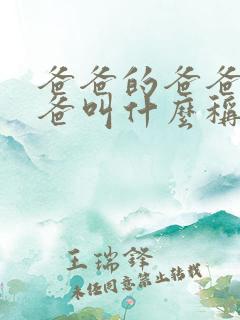 爸爸的爸爸
爸叫什麼稱
王瑞鋒
未经同意禁止转载